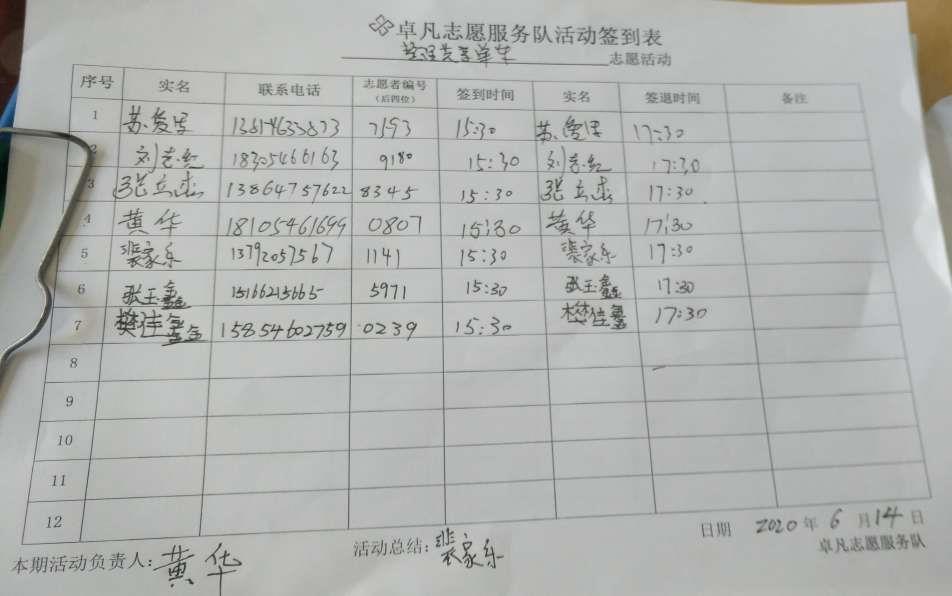 卓凡志愿服务队活动签到表
整理共享单车 志愿活动
序号 实名 联系电话 志愿者编号（后四位） 签到时间 实名 签退时间 备注
1 苏爱 13614633873 7193 15:30 苏爱 17:30
2 刘志红 18305466163 9180 15:30 刘志红 17:30
3 张立 13864757622 8345 15:30 张立 17:30
4 黄华 18105461699 0807 15:30 黄华 17:30
5 裴家乐 13792057567 1141 15:30 裴家乐 17:30
6 张玉鑫 15166215665 5971 15:30 张玉鑫 17:30
7 樊佳鑫 15854602759 0239 15:30 樊佳鑫 17:30
8
9
10
11
12
日期 2020年6月14日
本期活动负责人：黄华 活动总结：裴家乐 卓凡志愿服务队